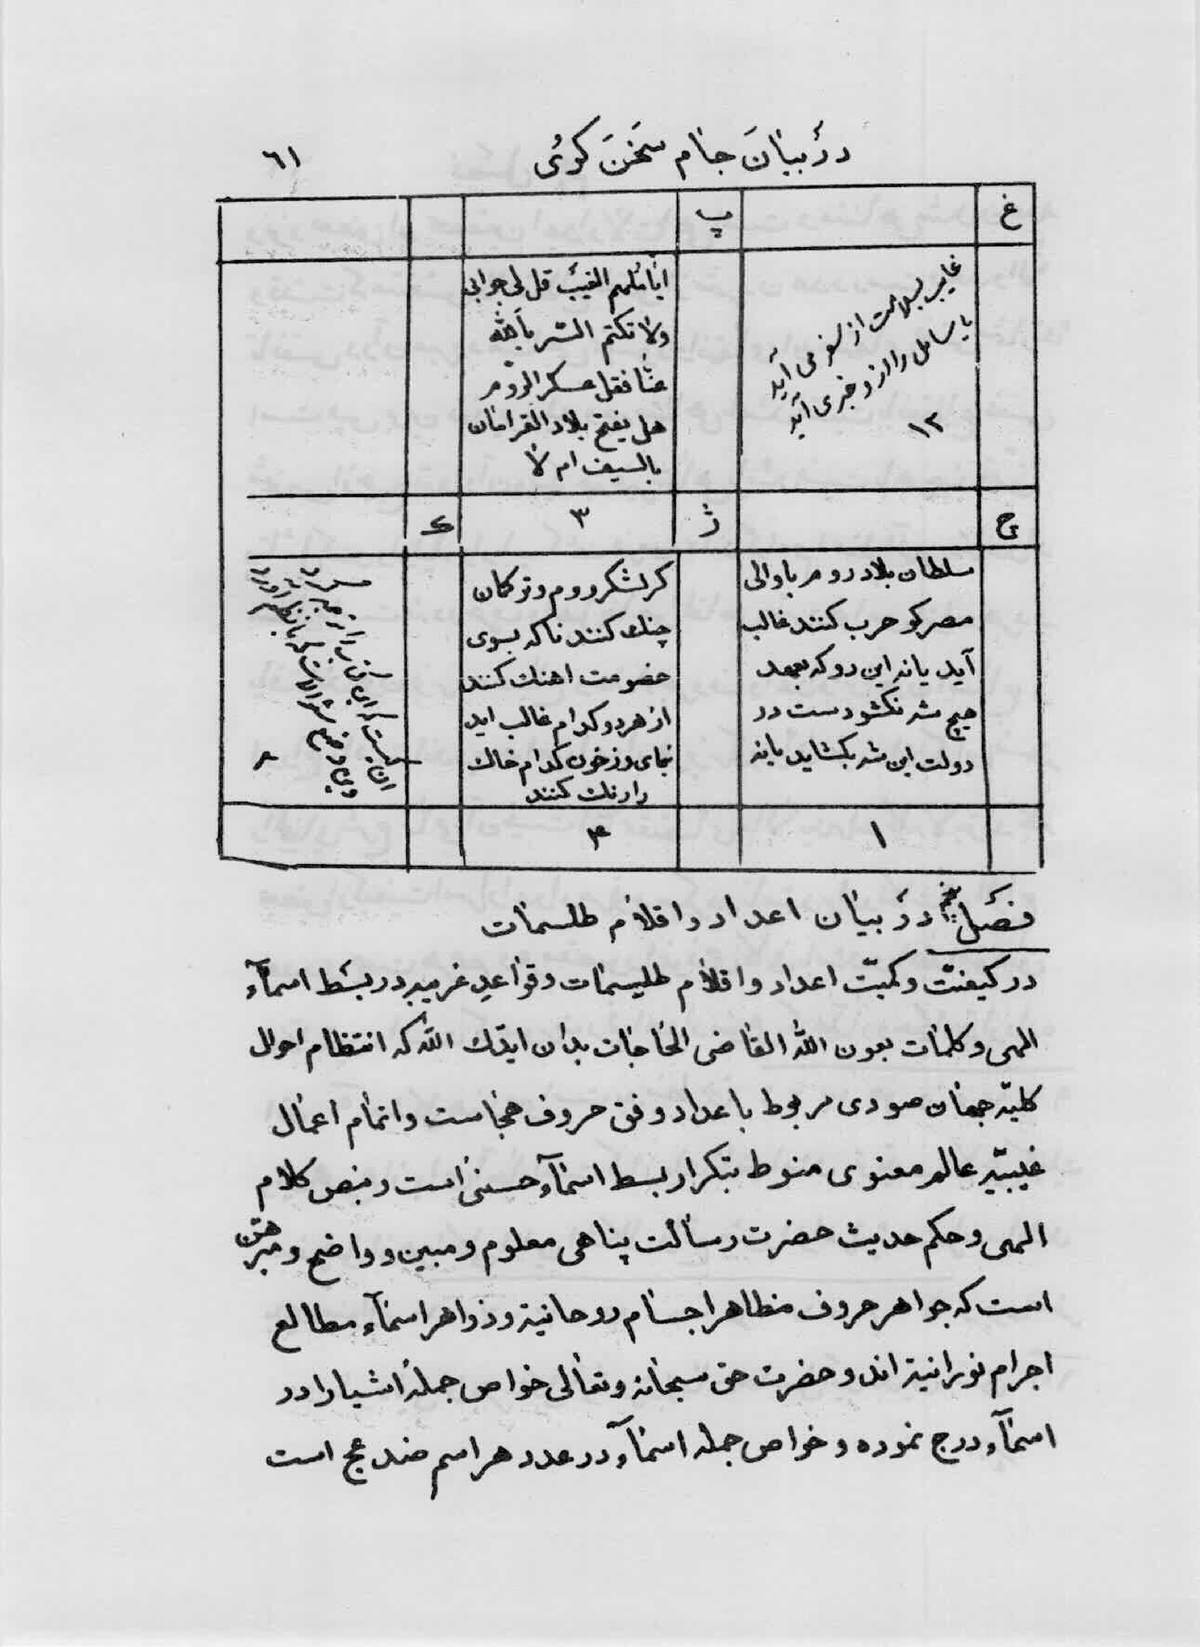 در بیان جام سخن کوی
٦١
غ
پ
غایب بسلامت از سفر می آید
یا سایل را از و خبری آید
١٢
ایا ملهم الغیب قل لی جوابی
ولا تکتم السر بالله
عنا فقل عسکر الروم
هل یفتح بلاد القرامان
بالسیف ام لا
ج
ژ
٣
ک
سلطان بلاد روم باوالی
مصر کو حرب کنند غالب
آید یا نه این دو که بعهد
هیچ شه نکشود دست در
دولت این شه بکشاید یا نه
کر لشکر روم و ترکمان
جنك کنند ناکه بسوی
خصومت اهنك کنند
از هر دو کدام غالب اید
بنمای وز خون کدام خاك
را رنك کنند
٨
١
۴
فصل در بیان اعداد و اقلام طلسمات
در کیفیّت و کمیّت اعداد و اقلام طلیسمات و قواعد غریبه در بسط اسمآء
الهی و کلمات بعون الله القاضی الحاجات بدان ایدّك الله که انتظام احوال
کلیّه جهان صوری مربوط باعداد وفق حروف هجاست و اتمام اعمال
غیبیّه عالم معنوی منوط بتکرار بسط اسمآء حسنی است و بنص کلام
الهی و حکم حدیث حضرت رسالت پناهی معلوم و مبین و واضح و مبرهن
است که جواهر حروف مظاهر اجسام روحانیة و زواهر اسمآء مطالع
اجرام نورانیة اند و حضرت حق سبحانه و تعالی خواص جمله اشیا را در
اسمآء درج نموده و خواص جمله اسمآء در عدد هر اسم مندمج است